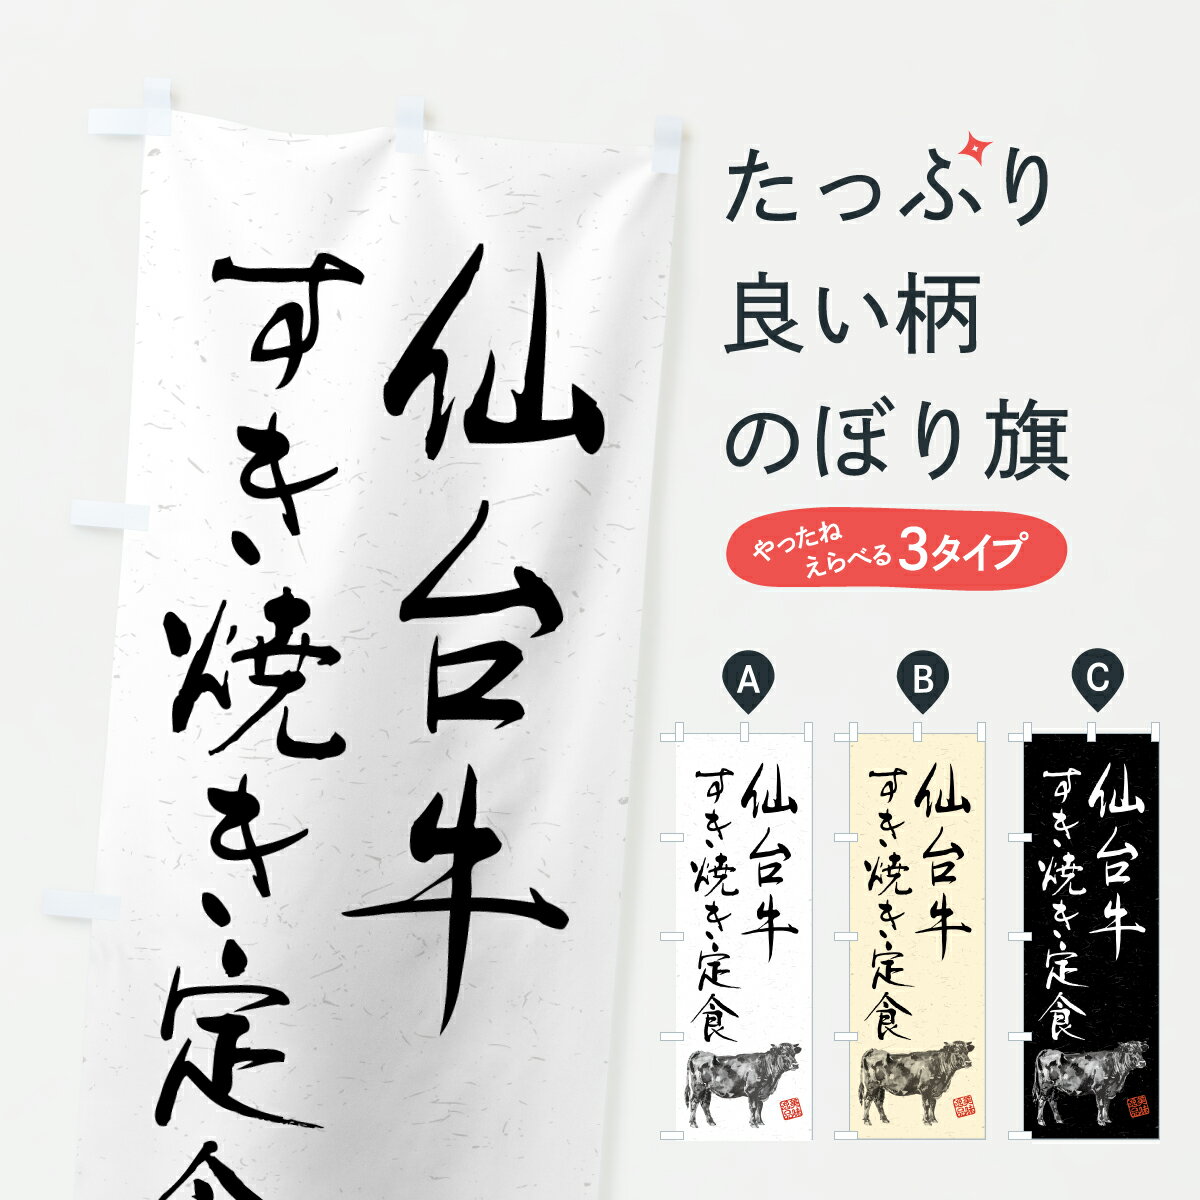 仙台牛
すき焼き定食
たっぷり
良い柄
のぼり旗
やったね
えらべる
3タイプ
A
仙台牛
すき焼き定食
B
仙台牛
すき焼き定食
C
仙台牛
すき焼き定食